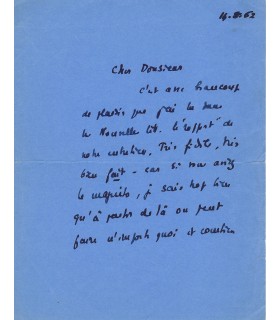 Cher Monsieur
c'est avec beaucoup
de plaisir que j'ai lu dans
les Nouvelles Lit. le
notre entretien. Très fidèle, très
bien fait - car si vous aviez
le magnéto, je sais trop bien
qu'à partir de là on peut
faire n'importe quoi et combien